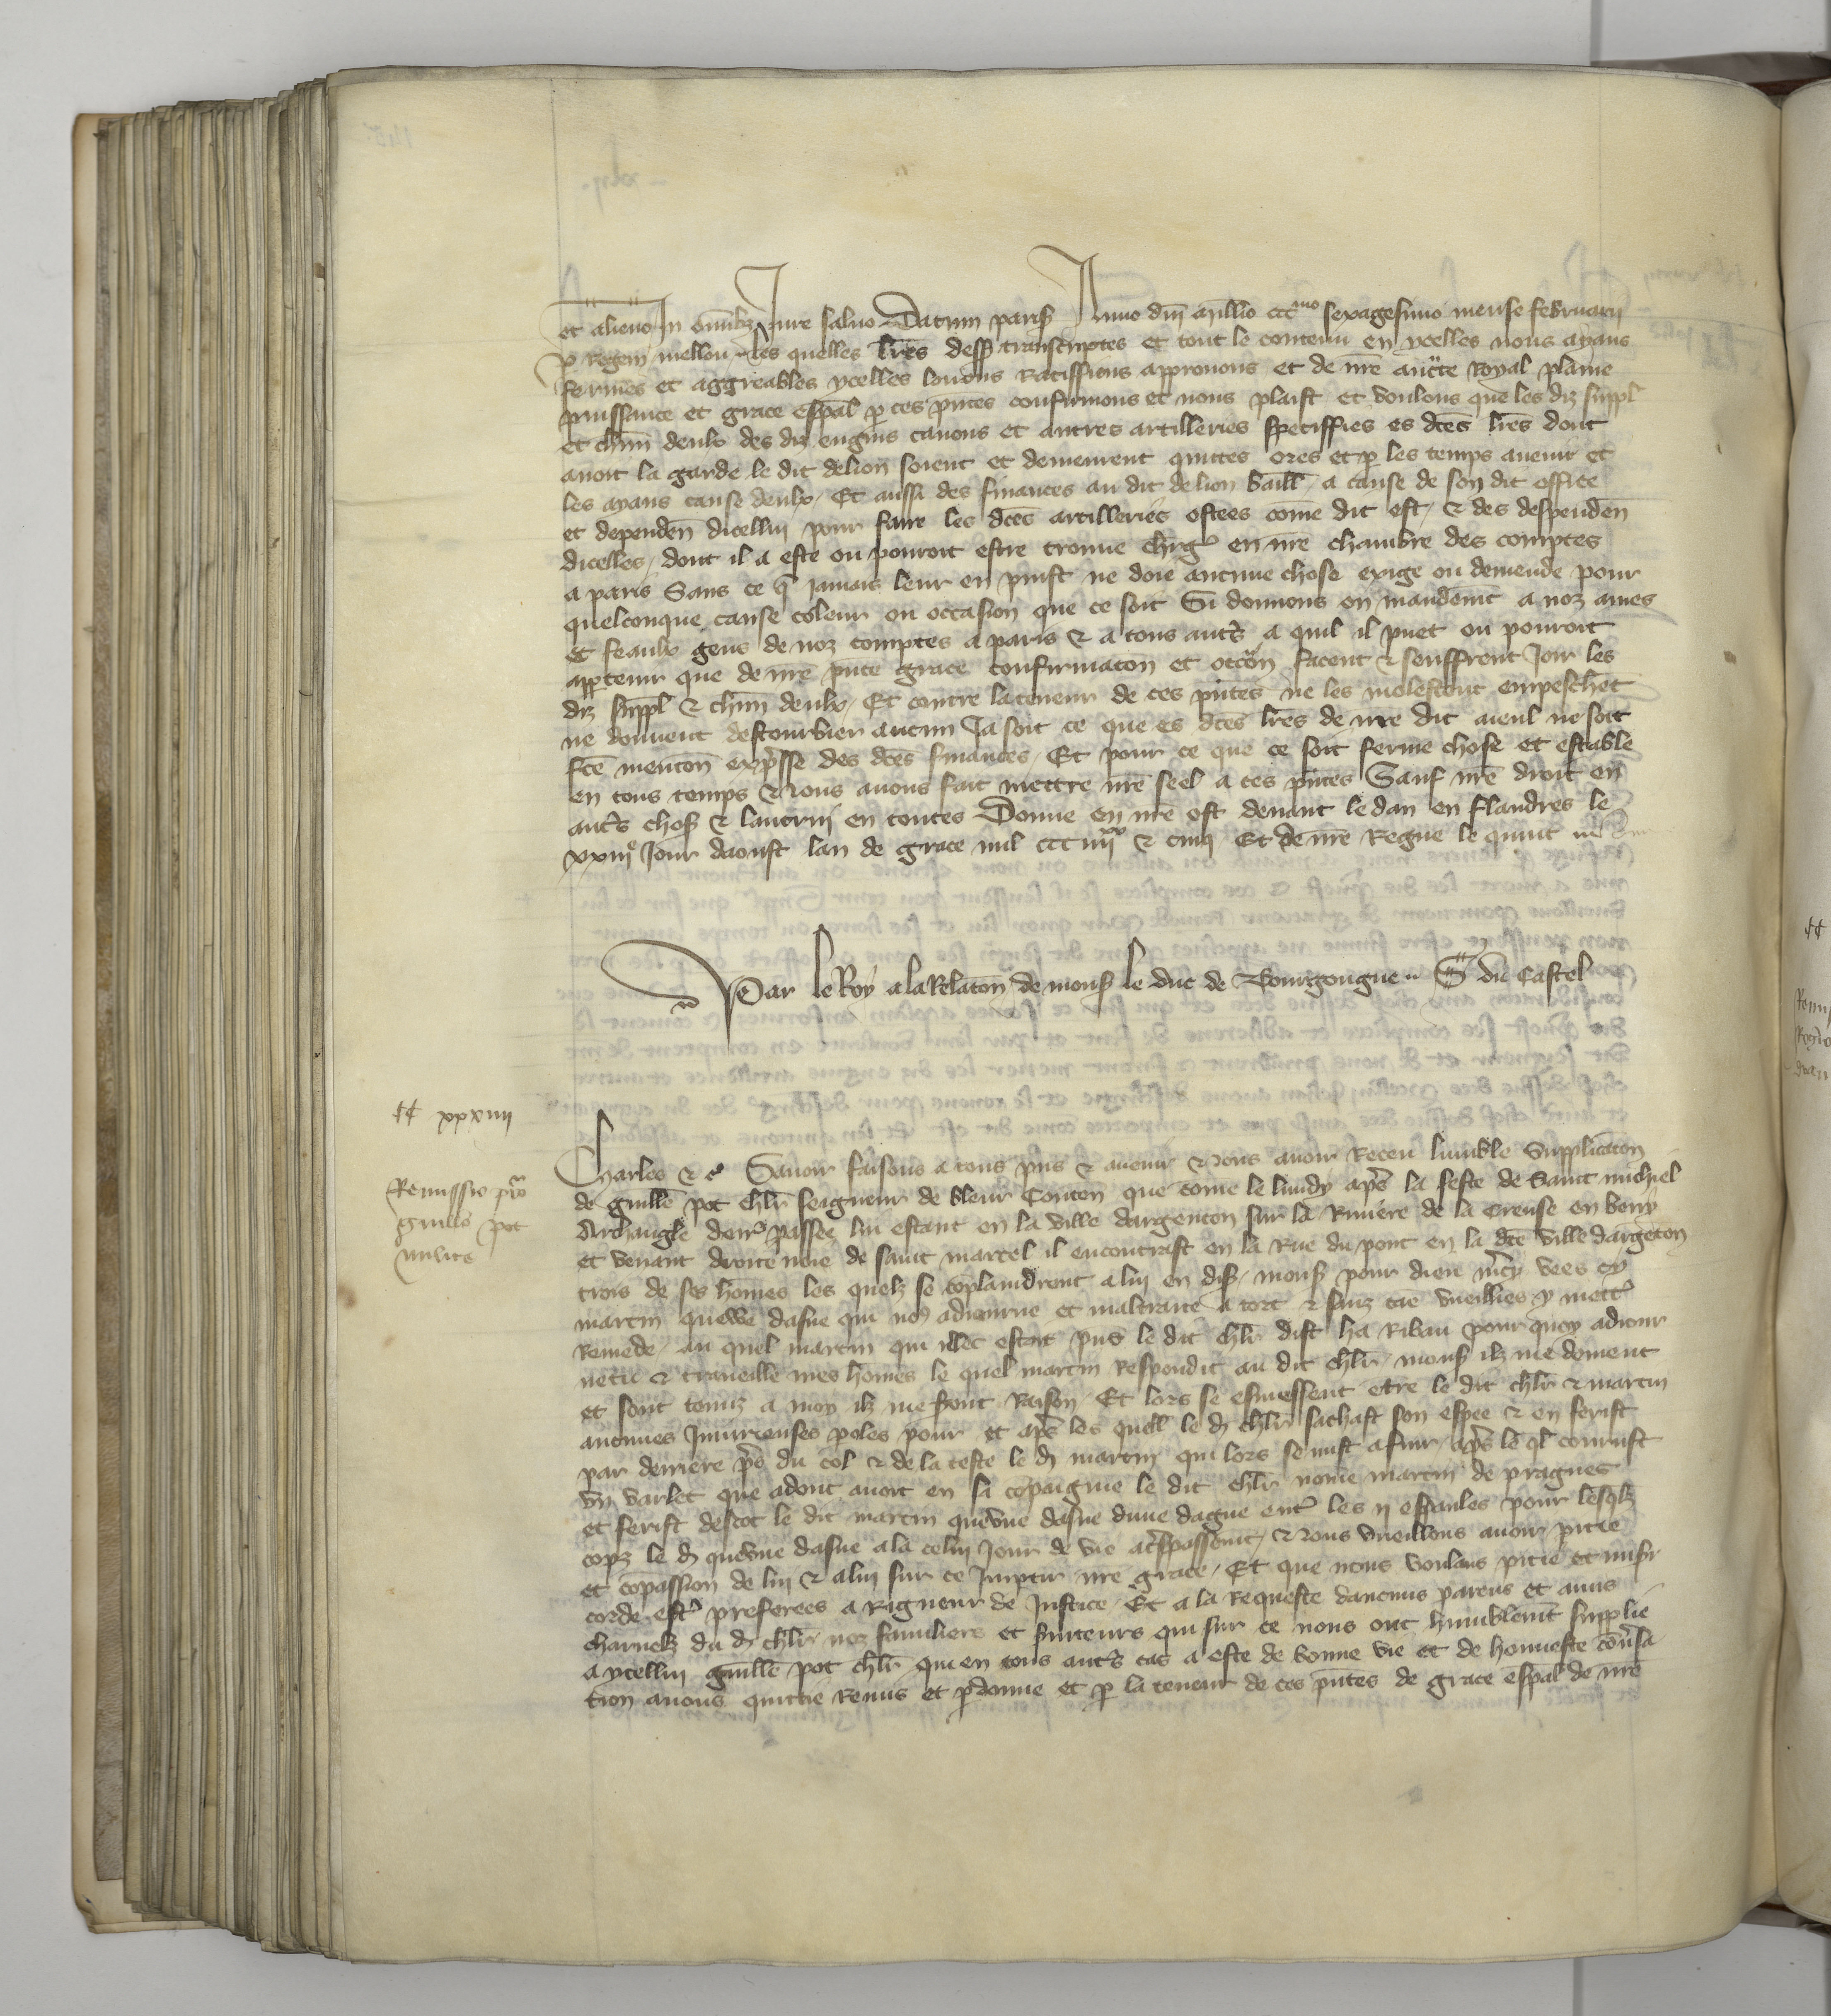 et alieno in omnibz Jure saluo Datum paris Anno dni millio ccc mo sexagesimo mense februarii
p Regem mellou les quelles lres dess transcriptes et tout le contenu en ycelles nous ayans
fermes et aggreables ycelles louons Ratiffions approuons et de nre aucte Royal plaine
puissance et grace espal p ces pntes confirmons et nous plaist et voulons que les diz suppl
et chun deulx des diz engins canons et autres artilleries speciffies es dces lres dont
auoit la garde le dit delion soient et demeurent quittes ores et p les temps auenir et
les ayans cause deulx Et aussi des finances au dit delion baill a cause de son dit office
et dependen dicellui pour faire les dces artilleries ostees come dit est & des despenden
dicelles dont il a este ou pouroit estre trouue chrg en nre chambre des comptes
a paris Sans ce q Jamais leur en puist ne doie aucune chose exige ou demende pour
quelconque cause coleur ou occasion que ce soit Si donnons en mandemt a noz ames
et feaulx gens de noz comptes a paris & a tous autrs a quil il puet ou pouroit
apptenir que de nre pnte grace confirmacon et octroy facent & seuffrent Joir les
diz suppl & chun deulx Et contre la teneur de ces pntes ne les molestent empeschent
ne donnent destourbier aucun Ja soit ce que es dces lres de nre dit aieul ne soit
fce mencon expsse des dces finances Et pour ce que ce soit ferme chose et estable
en tous temps Nous auons fait mettre nre seel a ces pntes Sauf nre droit en
autrs chos & lautruy en toutes Donne en nre ost deuant le dan en flandres le
xxiiij e Jour daoust lan de grace mil ccc iiii xx & cinq Et de nre Regne le quint
Par le Roy a la Relacon de mons le duc de Bourgongne G du Castel
xxxiiii
Remissio pro
guillo pot
milite
Charles &c Sauoir faisons a tous pns & auenir Nous auoir Receu lumble Supplicacon
de guille pot chlr seigneur de bleur Conten que come le lundy aps la feste de Saint michiel
Archangle derr passee lui estant en la ville dargenton sur la Riuiere de la Creuse en berry
et venant droite uoie de saint marcel il encontrast en la Rue du pont en la dce ville dargeton
trois de ses homes les quelz se coplaindrent a lui en dis mons pour dieu mcy vees cy
martin queuue dasne qui no adiourne et maltraite a tort & sanz cae vueillies y mettr
Remede au quel martin qui illec estoit pns le dit chlr dist ha Ribau pour quoy adiour
nes tu & traueille mes homes le quel martin Respondit au dit chlr mons ilz me doiuent
et sont tenuz a moy ilz me font Raison Et lors se esmeussent etre le dit chlr & martin
aucunes Iniurieuses poles pour et aps les quell le d chlr sachast son espee & en ferist
par derriere ps du col & de la teste le d martin qui lors se mist a fuir aps le ql courust
vn varlet que adont auoit en sa copaignie le dit chlr nome martin de pragnes
et ferist destoc le dit martin queuue dasne dune dague entr les ij espaules pour lesqlz
copz le d queuue dasne a la celui Jour de vie atrespassemt Nous vueillons auoir pitie
et copassion de lui & a lui sur ce Impartir nre grace Et que nous voulans pitie et misr
corde estr preferees a Rigueur de Justice Et a la Requeste daucuns parens et amis
charnelz du d chlr noz familiers et suiteurs qui sur ce nous ont humblemt supplie
a ycellui guille pot chlr qui en tous autrs cas a este de bonne vie et de honneste conusa
tion auons quittie Remis et pdonne et p la teneur de ces pntes de grace espal de nre